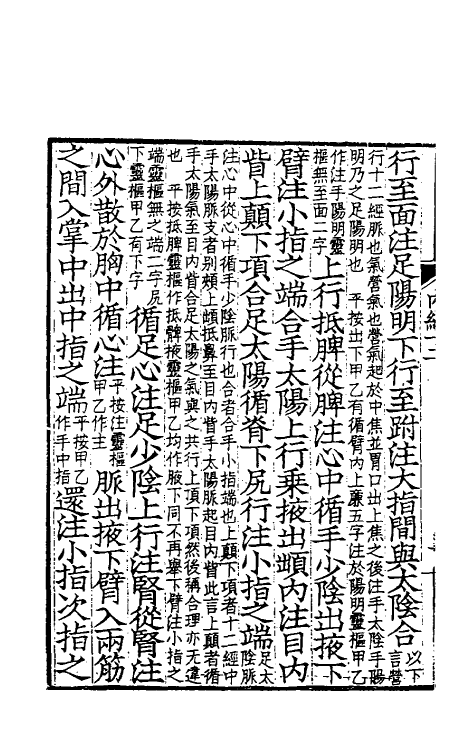 行至面注足陽明下行至跗注大指間與太陰合以下言營
行十二經脈也氣營氣也營氣起於中焦並胃口出上焦之後注手太陰手陽
明乃之足陽明也　平按出下甲乙有循臂內上廉五字注於陽明靈樞甲乙
作注手陽明靈樞無至面二字上行抵脾從脾注心中循手少陰出掖下
臂注小指之端合手太陽上行乘掖出䪼內注目內
眥上顛下項合足太陽循脊下尻行注小指之端足太陰脈
注心中從心中循手少陰脈行也合者合手小指端也上顛下項者十二經中
手太陽脈支者别頰上䪼抵鼻至目內眥手太陽脈起目內眥此言上顛者循
手太陽氣至目內眥合足太陽之氣與之共行上頂下項然後稱合理亦无違
也　平按抵脾靈樞作抵髀掖靈樞甲乙均作腋下同不再舉下臂注小指之
端靈樞無之端二字尻下靈樞甲乙有下字循足心注足少陰上行注腎從腎注
心外散於胸中循心注平按注靈樞甲乙作主脈出掖下臂入兩筋
之間入掌中出中指之端平按甲乙作手中指還注小指次指之